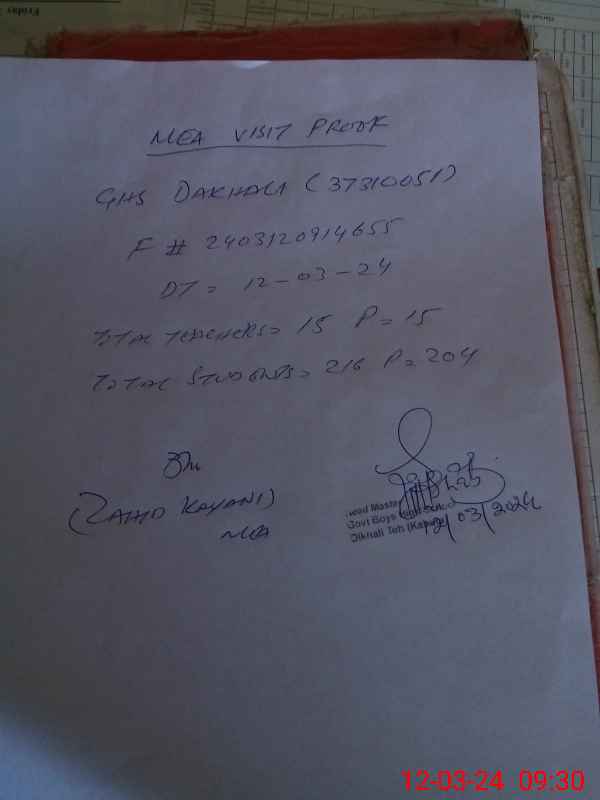 MEA VISIT PROOF
GHS DAKHALI (37310051)
F # 2403120914655
DT = 12-03-24
TOTAL TEACHERS = 15 P = 15
TOTAL STUDENTS = 216 P = 204
(ZAHID KAYANI)
MEA
Head Master
Govt Boys High School
Dikhali Teh (
12/03/2024
12-03-24 09:30